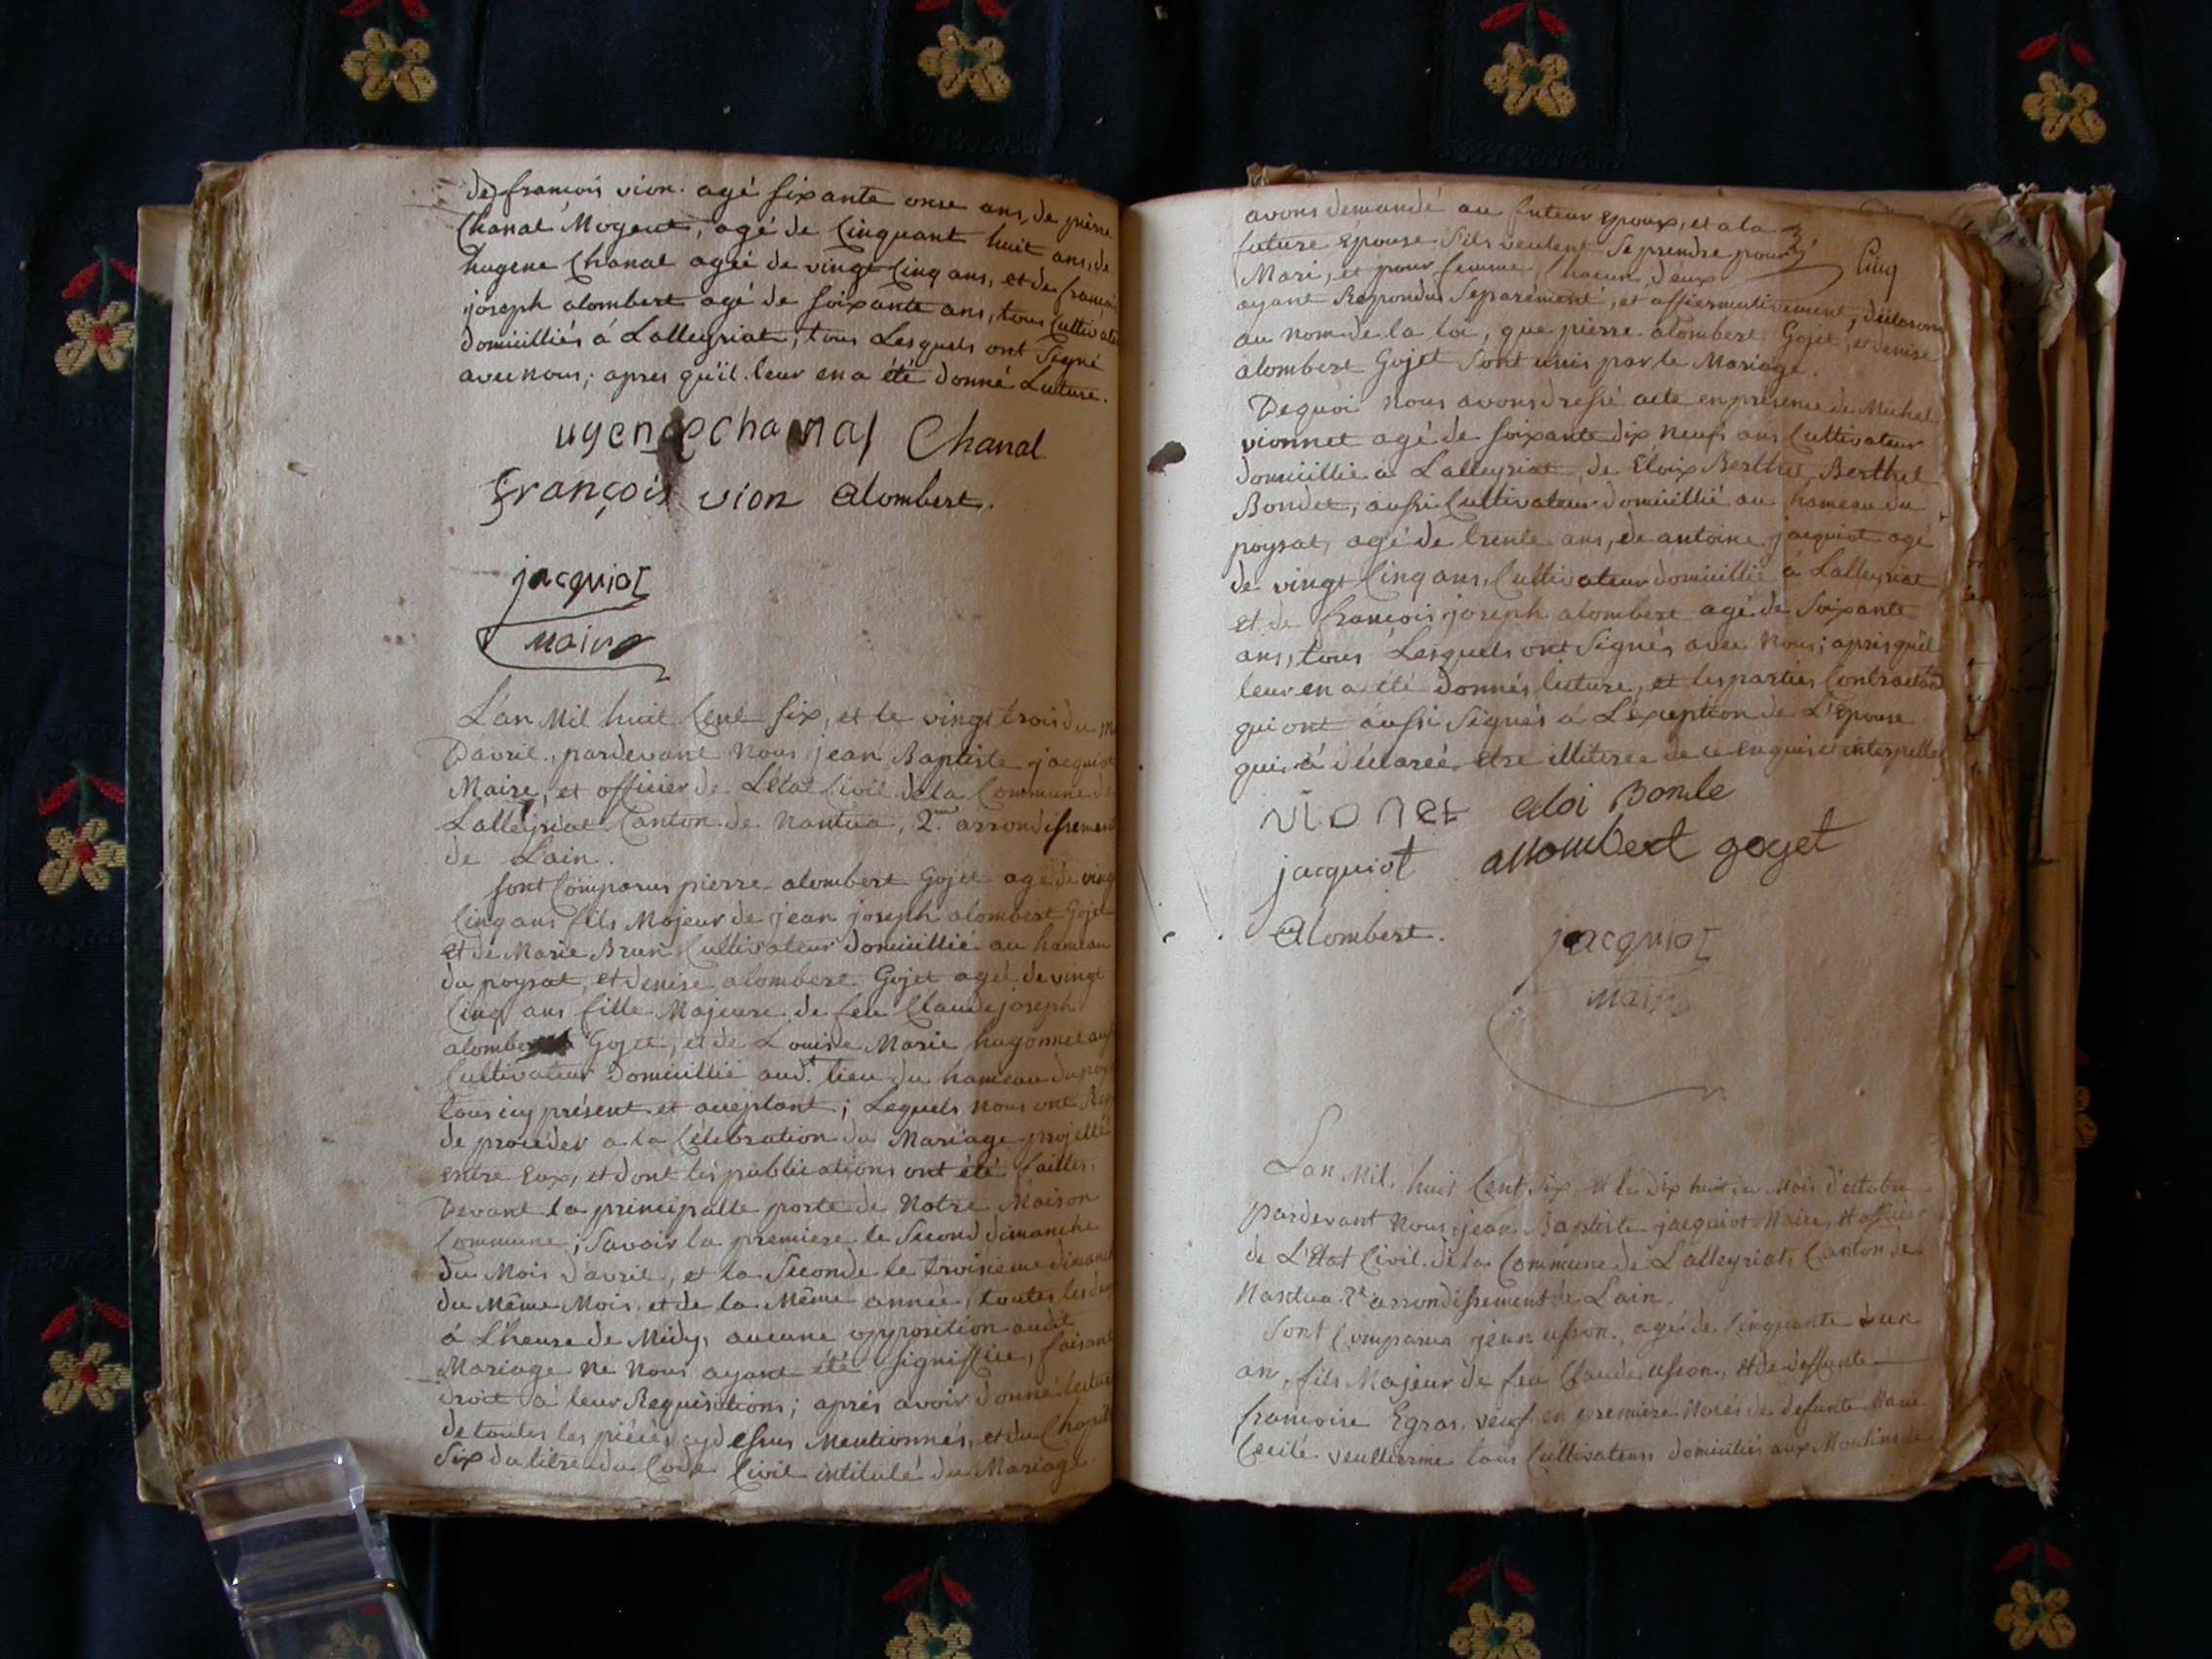 de françois vion. agé sixante onse ans, de pierre
Chanal Mogent, agé de Cinquant huit ans, de
hugene Chanal agée de vingt Cinq ans, et de francois
joseph alombert agé de soixante ans, tous Cultivate
domicilliés á Lalleyriat, tous Lesquels ont Signé
avec nous; apres qu'il leur en a été donné Lecture.
ugene chanal Chanal
François vion alombert.
jacquiot
maire
L'an Mil huit Cent six, et le vingt trois du
D'avril, pardevant Nous jean Baptiste jacquiot
Maire, et officier de L'état Civil de la Commune de
Lalleyriat Canton de Nantua, 2.me arrondissement
de Lain.
sont Comparus pierre alombert Gojet agé de vingt
Cinq ans fils Majeur de jean joseph alombert Gojet
et de Marie Brun Cultivateur domicillié au hameau
du poysat, et denise alombert Gojet agée de vingt
Cinq ans fille Majeure de feu Claude joseph
alombert Gojet, et de Louise Marie hugonnet
Cultivateur Domicillié aud.t lieu du hameau du
tous icy présent et aceptant; Lequels Nous ont
de procéder a la Célébration du Mariage projetté
entre Eux, et dont les publications ont été faittes.
Devant la principalle porte de Notre Maison
Commune; Savoir la premiere le Second dimanche
du Mois d'avril, et la Seconde le troisieme dimanche
du Même Mois, et de la Même année, toutes les deux
á L'heure de Midy, aucune opposition audit
Mariage Ne Nous ayant été signiffiée, faisant
droit á leur Requisitions; aprés avoir donné lecture
de toutes les piéces cydessus Mentionnés, et du Chapitre
Six du titre du Code Civil intitulé du Mariage
avons demandé au futeur epoux, et a la
future epouse S'ils veulent Se prendre pour
Cinq
Mari, et pour femme, Chacun d'eux
ayant Repondus Separément, et affiermativement, déclarons
au nom de la loi, que pierre alombert Gojet, et denise
alombert Gojet sont unis par le Mariage.
Dequoi Nous avons dressé acte en présence de Michel
vionnet agé de soixante dix Neufs ans Cultivateur
domicillié á Lalleyriat, de Eloix Berthet Berthet
Bondet, aussi Cultivateur domicillié au hameau du
poysat, agé de trente ans, de antoine jacquiot agé
de vingt Cinq ans, Cultivateur domicillié á Lalleyriat
et de françois joseph alombert agé de Soixante
ans, tous Lesquels ont Signés avec Nous; aprés qu'il
leur en a été donnés lecture, et les parties Contractant
qui ont aussi Signés á L'exception de L'epouse
qui á déclarée etre illiteree de ce enquise et interpellée
vionet eloi Bonde
jacquiot allombert gojet
alombert.
jacquiot
maire
L'an Mil huit Cent six et le dix huit du Mois d'octobre
pardevant Nous jean Baptiste jacquiot Maire, et officier
de L'Etat Civil de la Commune de Lalleyriat, Canton de
Nantua 2e arrondissement de Lain.
Sont Comparus jean usson, agé de Cinquante é un
an, fils Majeur de feu Claude usson, et de deffunte
francoise Egras, veuf en premiere Noces de defunte Marie
Cecile veuillerme tous Cultivateurs domiciliés aux Moulins de